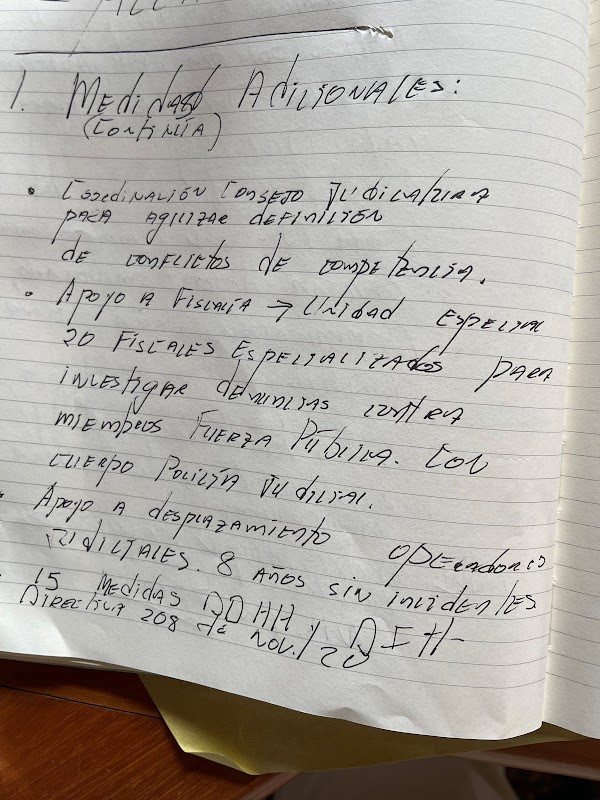 1. Medidas Adicionales:
(Confinia)
• Coordinación Consejo Judicatura
para agilizar definición
de conflictos de competencia.
• Apoyo a Fiscalía → Unidad Especial
20 Fiscales Especializados para
investigar denuncias contra
miembros Fuerza Pública. Con
cuerpo Policía Judicial.
• Apoyo a desplazamiento operadores
judiciales. 8 años sin incidentes
• 15 medidas DDHH y DIH
Directiva 208 de Nov. / 20